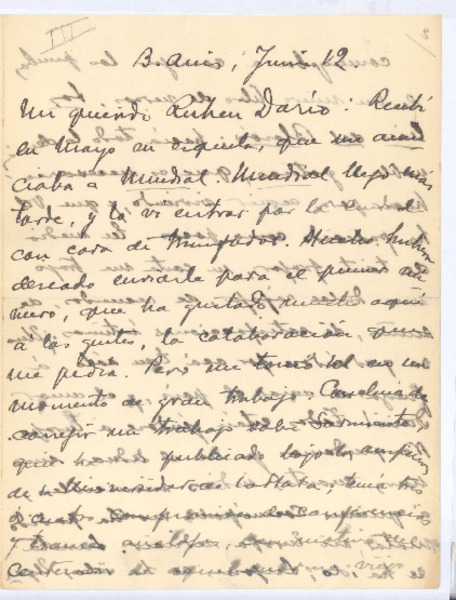 IV
2
B. Aires, Junio 12.
Mi querido Ruben Darío: Recibí
en Mayo su esquela, que me anun
ciaba a Mundial. Mundial llegó más
tarde, y la vi entrar por la
con cara de triunfador. Mucho hubiera
deseado enviarle para el primer nú
mero, que ha gustado mucho aquí
a las gentes, la colaboración que
me pedía. Pero me tomó Ud en un
momento de gran trabajo. Concluía de
corregir mi trabajo sobre Sarmiento
que ha publicado bajo
de la Universidad de La Plata, tenía tres
o cuatro compromisos de conferencias
y
centenario de